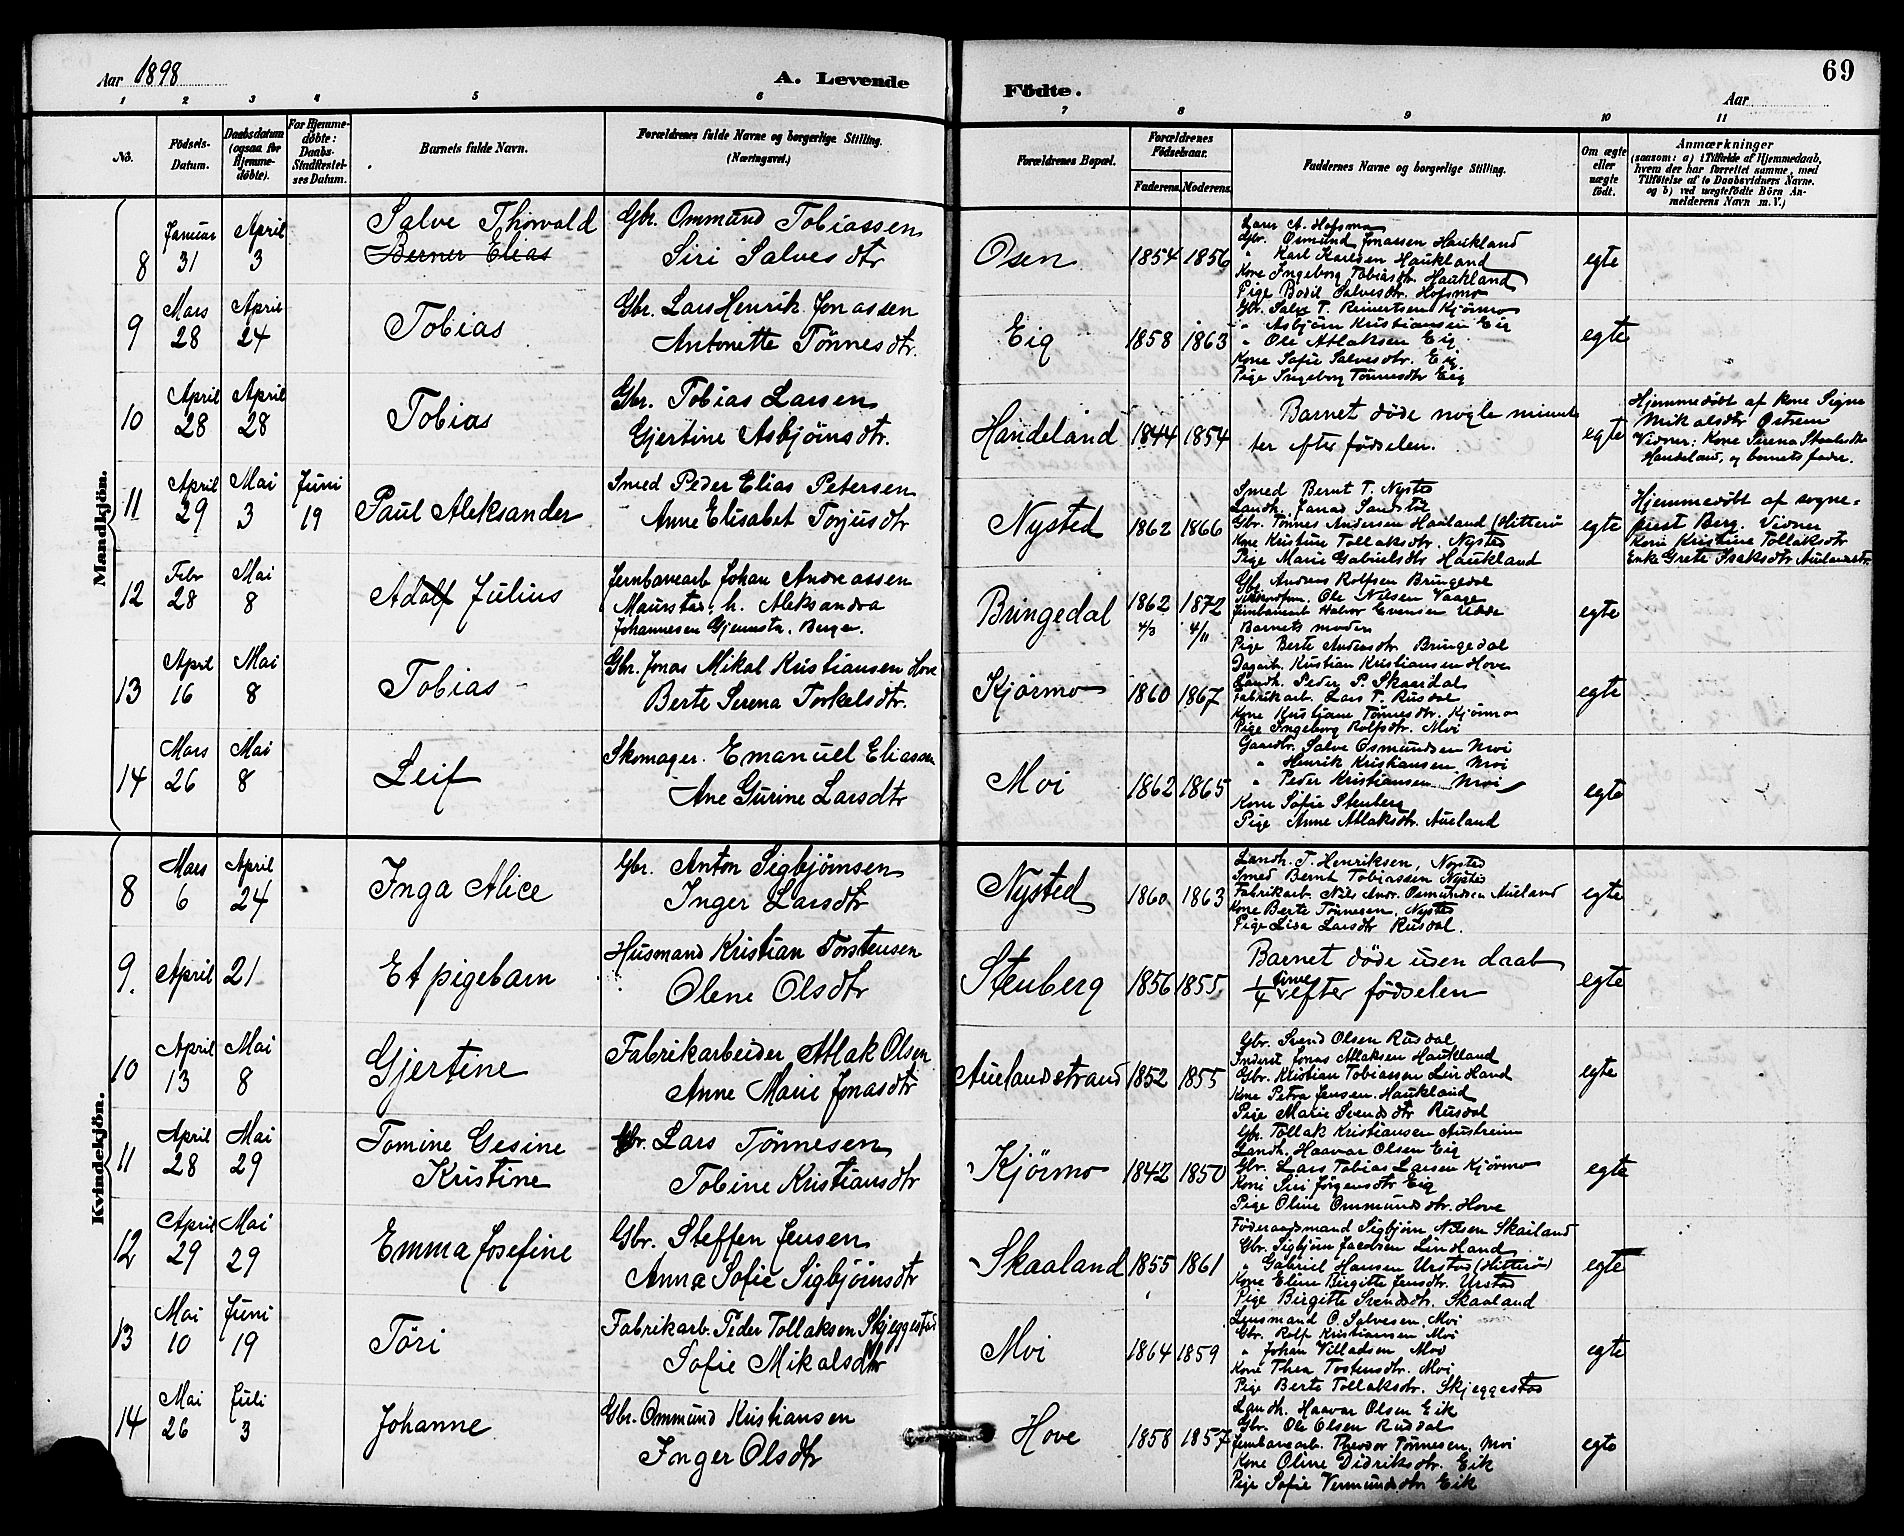 Aar 1898
A. Levende
Födte.
69
Aar
1 2 3 4 5 6 7 8 9 10 11
No.
Födsels-
Datum.
Daabsdatum
(ogsaa for
Hjemme-
döbte).
For Hjemme-
döbte:
Daabs-
Stadfæstel-
ses Datum.
Barnets fulde Navn.
Forældrenes fulde Navne og borgerlige Stilling.
(Næringsvei.)
Forældrenes Bopæl.
Forældrenes
Födselsaar.
Faderens. Moderens.
Faddernes Navne og borgerlige Stilling.
Om ægte
eller
uægte
födt.
Anmærkninger
(saasom: a) i Tilfælde af Hjemmedaab,
hvem der har forrettet samme, med
Tilföielse af to Daabsvidners Navne.
og b) ved uægtefödte Börn An-
melderens Navn m. V.)
Mandkjön.
8
Januar
31
April
3
Salve Thorvald
Berner Elias
Gbr. Ommund Tobiassen
Siri Salvesdtr
Osen
1854 1856
Lars A. Hofsmo
Gbr. Osmund Jonassen Haukland
" Karl Karlsen Haukland
Kone Ingeborg Tobiasdtr. Haukland
Pige Bodil Salvesdtr. Hofsmo
egte
9
Mars
28
April
24
Tobias
Gbr. Lars Henrik Jonassen
Antonette Tönnesdtr.
Eig
1858 1863
Gbr. Salve T. Reinertsen Kjörmo
" Asbjörn Kristiansen Eig
" Ole Atlaksen Eig
Kone Sofie Salvesdtr. Eig
Pige Ingeborg Tönnesdtr Eig
egte
10
April
28
April
28
Tobias
Gbr. Tobias Larsen
Gjertine Asbjörnsdtr.
Handeland
1844 1854
Barnet döde nogle minut-
ter efter födselen.
egte
Hjemmedöbt af kone Signe
Mikalsdtr Östrem
Vidner: Kone Serena
Handeland, og barnets fader.
11
April
29
Mai
3
Juni
19
Paul Aleksander
Smed Peder Elias Petersen
Anne Elisabet Torjusdtr
Nysted
1862 1866
Smed Bernt T. Nysted
Landh. Jonas Sandstöl
Gbr. Tönnes Andersen Hauland (Hitterö
Kone Kristine Tollaksdtr. Nysted
Pige Marie Gabrielsdtr Haukland
egte
Hjemmedöbt af sogne-
prest Berg. Vidner
Kone Kristine Tollaksdtr
Enke Grete Isaksdtr Auelandstr.
12
Febr
28
Mai
8
Adolf Julius
Jernbanearb Johan Andreassen
Maurstad, h. Aleksandra
Johannesen Gjennsta. Bergen.
Bringedal
1862 1872
4/3 4/11
Gbr. Andreas Rolfsen Bringedal
Ole Nilsen Vaage
Jernbanearb Halvor Evensen
Barnets moder
Pige Berte Andreasdtr Bringedal
egte
13
April
16
Mai
8
Tobias
Gbr. Jonas Mikal Kristiansen Hove
Berte Serena Torkelsdtr.
Kjörmo
1860 1867
Dagarb. Kristian Kristiansen Hove
Landh. Peder P. Skaardal
Fabrikarb. Lars T. Rusdal
Kone Kristiane Tönnesdtr. Kjörmo
Pige Ingeborg Rolfsdtr. Moi
egte
14
Mars
26
Mai
8
Leif
Skomager. Emanuel Eliassen
Ane Gurine Larsdtr
Moi
1862 1865
Gaardbr. Salve Osmundsen Moi
" Henrik Kristiansen Moi
" Peder Kristiansen Moi
Kone Sofie Stenberg
Pige Anne Atlaksdtr. Aueland
egte
Kvindekjön.
8
Mars
6
April
24
Inga Alice
Gbr. Anton Sigbjörnsen
Inger Larsdtr
Nysted
1860 1863
Landh. T. Henriksen, Nysted
Smed Bernt Tobiassen Nysted
Fabrikarb. Nils Andr. Osmundsen Aueland
Kone Berte Tönnesen, Nysted
Pige Lisa Larsdtr Rusdal.
egte
9.
April 21
Et pigebarn
Husmand Kristian Torstensen
Olene Olsdtr
Stenberg
1856 1855
Barnet döde uden daab
1/4 time efter födselen
egte
10
April
13
Mai
8
Gjertine
Fabrikarbeider Atlak Olsen
Anne Marie Jonasdtr
Auelandstrand
1852 1855
Gbr. Svend Olsen Rusdal
Inderst Jonas Atlaksen Haukland
Gbr. Kristian Tobiassen Lindland
Kone Petra Jensen, Haukland
Pige Marie Svendsdtr Rusdal
egte
11
April
28
Mai
29
Tomine Gesine
Kristine
Gbr. Lars Tönnesen
Tobine Kristiansdtr
Kjörmo
1842 1850
Gbr. Tollak Kristiansen Austreim
Landh. Haavar Olsen Eig
Gbr. Lars Tobias Larsen Kjörmo
Kone Siri Jörgensdtr Eig
Pige Oline Ommundsdtr. Hove
egte
12
April
29
Mai
29
Emma Josefine
Gbr. Steffen Jensen
Anna Sofie Sigbjörnsdtr
Skaaland
1855 1861
Föderaadsmand Sigbjörn Nilsen Skaaland
Gbr. Sigbjörn Jacobsen Lindland
" Gabriel Hansen Urstad (Hitterö)
Kone Eline Birgitte Jensdtr. Urstad
Pige Birgitte Svendsdtr. Skaaland
egte
13
Mai
10
Juni
19
Töri
Fabrikarb. Peder Tollaksen Skjeggestad
Sofie Mikalsdtr
Moi
1864 1859
Lensmand O. Salvesen, Moi
Gbr. Rolf Kristiansen Moi
" Johan Villadsen Moi
Kone Thea Tostensdtr. Moi
Pige Berte Tollaksdtr. Skjeggestad
egte
14
Mai
26
Juli
3
Johanne
Gbr. Ommund Kristiansen
Inger Olsdtr
Hove
1858 1857
Landh. Haavar Olsen Eik
Gbr. Ole Olsen Rusdal
Jernbanearb. Theodor Tönnesen, Moi
Kone Oline Didriksdtr. Eik
Pige Sofie Vermundsdtr Eik
egte